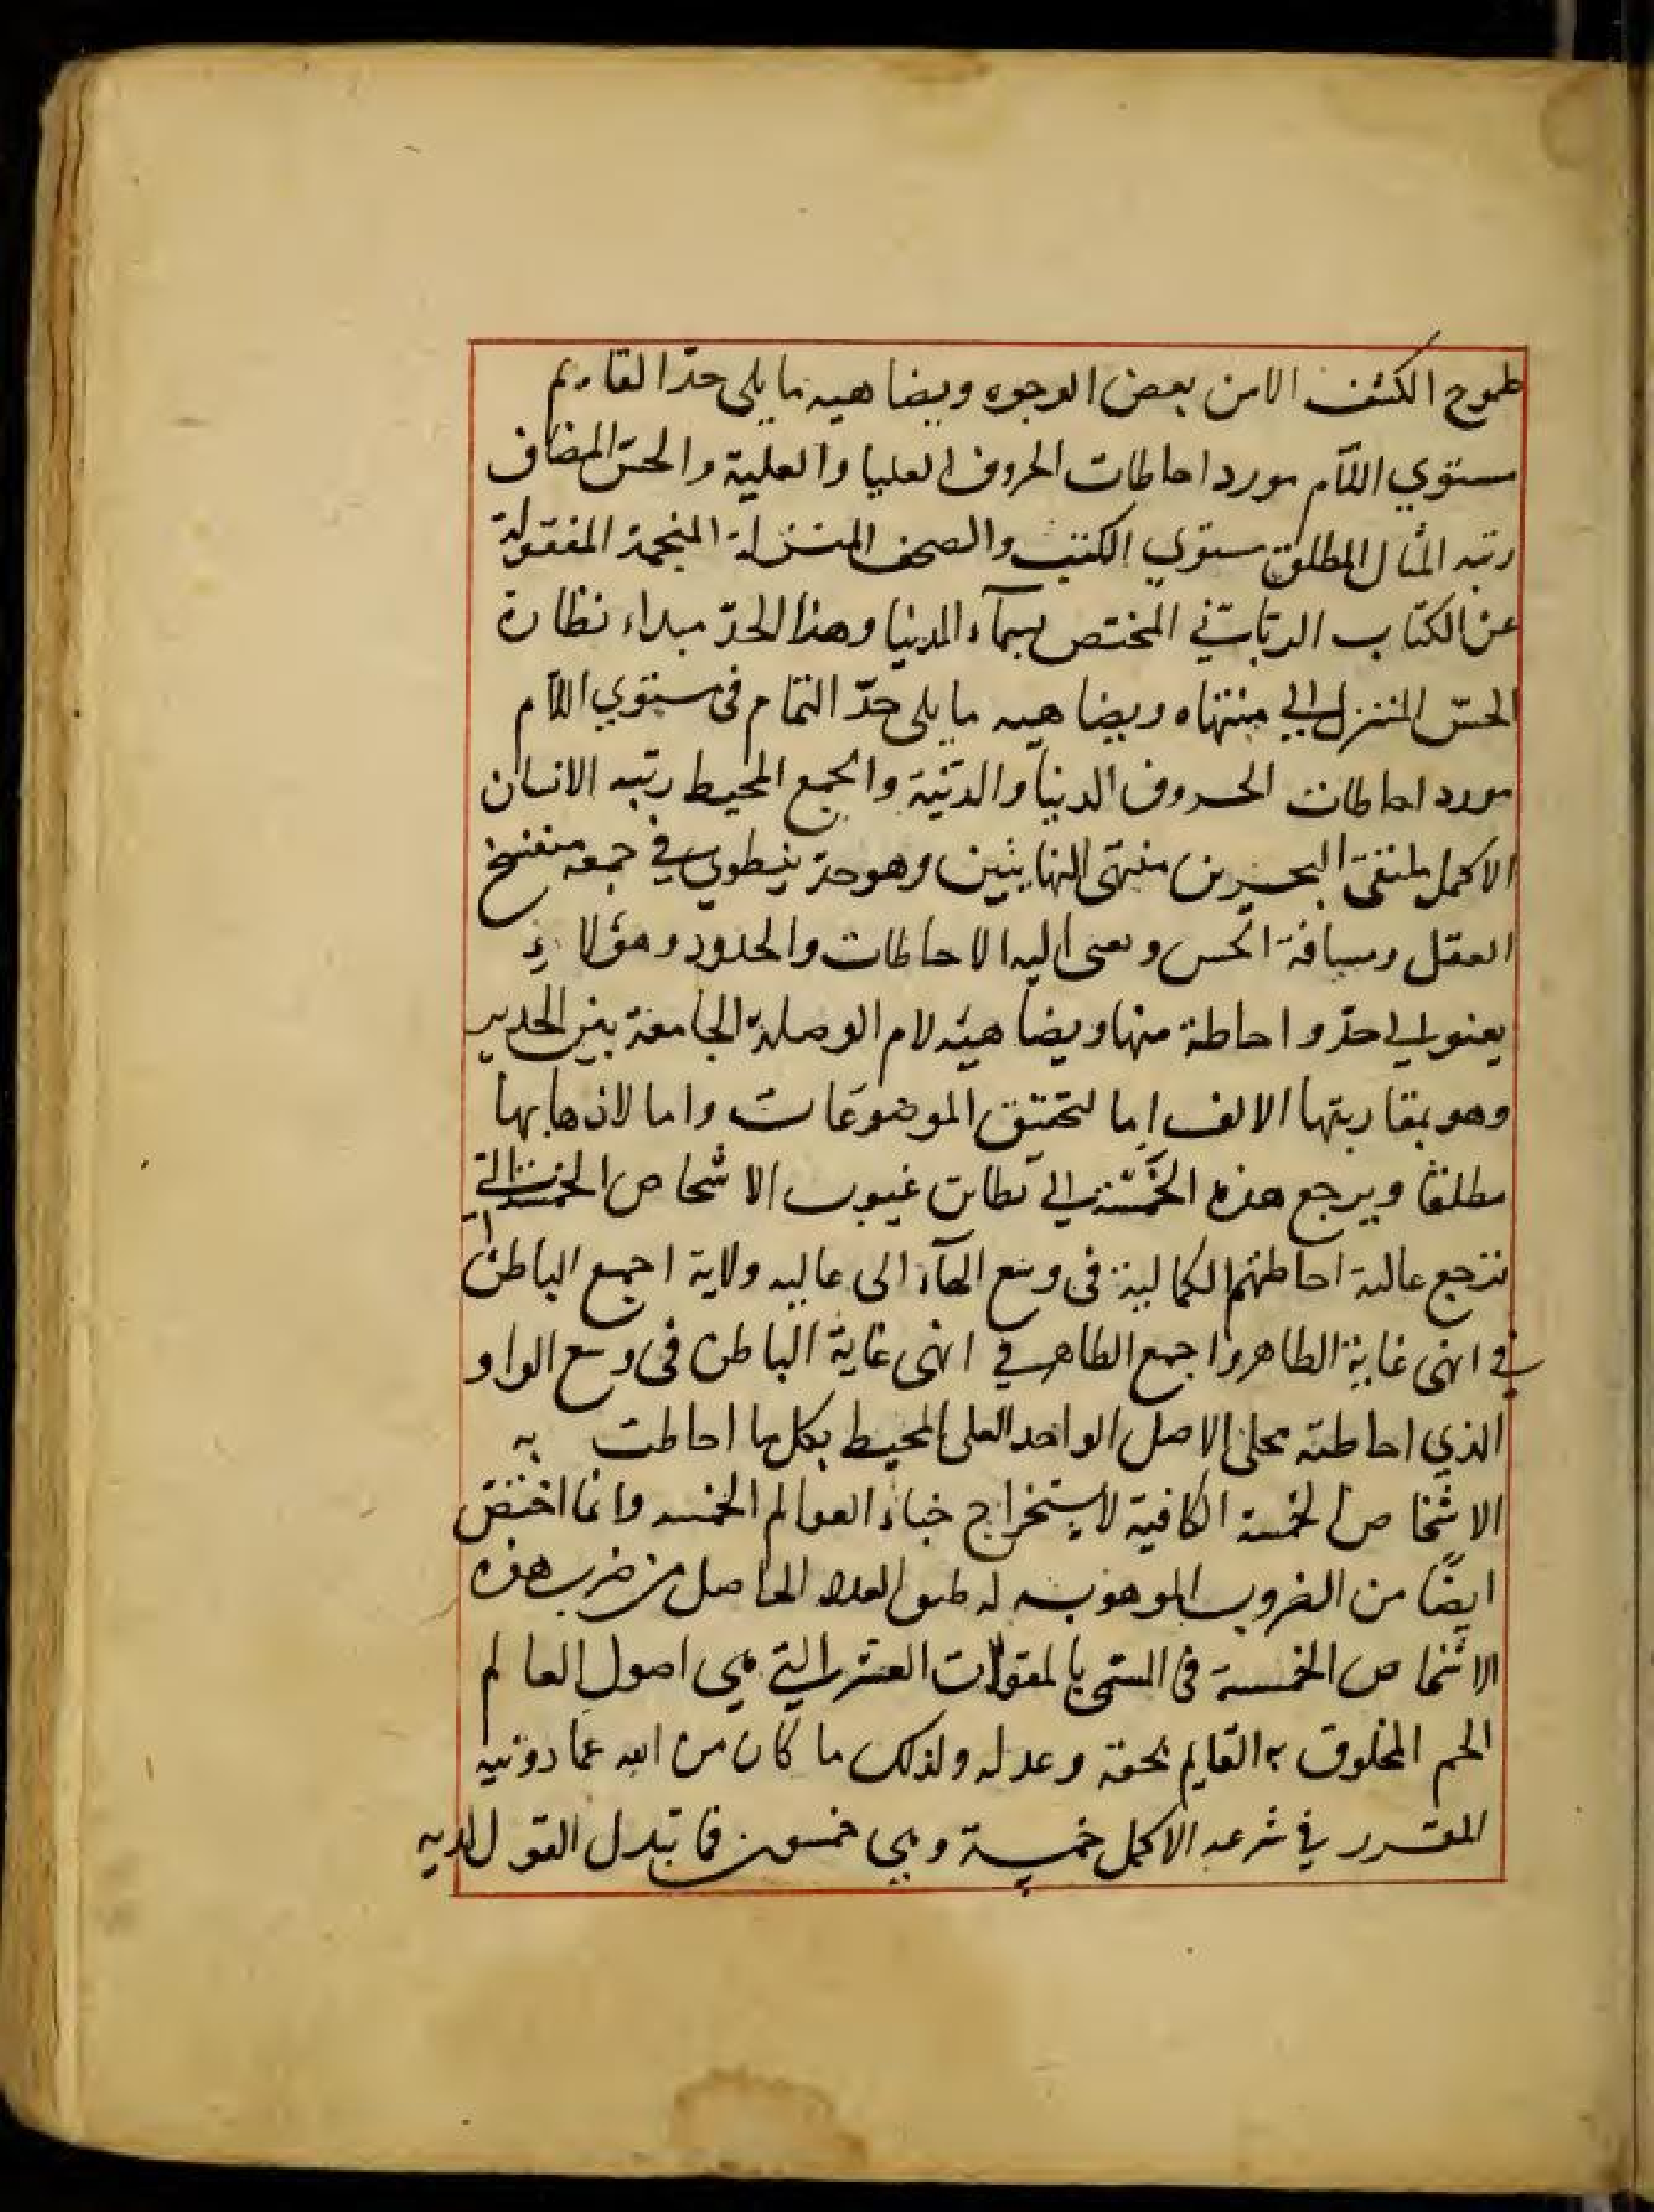 طموح الكشف الا من بعض الوجوه ويضاهيه ما يلى حدّ القايم
مستوي اللآم مورد احاطات الحروف العليا والعلية والحسّ المضاف
رتبه المثال المطلق مستوي الكتب والصحف المنزلة المنجمة
عن الكتاب المختص بسمآء الدنيا وهذا الحدّ مبداء نظارة
الحسّ المنزل الى منتهاه ويضاهيه ما يلى حدّ التمام فى مستوي اللآم
مورد احاطات الحروف الدنيا والدنية والجمع المحيط رتبه الانسان
الاكمل ملتقى البحرين منتهى النهايتين وهو حدّ ينطوي في جمعه
العقل ومسافة الحس اليه الاحاطات والحدود وهؤلاء
حدّ واحاطة منها ويضاهيه لام الوصلة الجامعة بين الحدين
وهو بمقاربتها الالف اما لتحقق الموضوعات واما لاذهابها
مطلقا ويرجع هذه الخمسة الى غيوب الاشخاص الخمسة التى
ترجع عالية احاطتهم الكمالية فى وسع الهآء الى عاليه ولاية اجمع الباطن
في انهى غاية الظاهر واجمع الظاهر في انهى غاية الباطن فى وسع الواو
الذي احاطته محل الاصل الواحد العلى المحيط بكل ما احاطت به
الاشخاص الخمسة الكافية لاستخراج خباء العوالم الخمسه وانما اختص
ايضًا من الضروب الموهوبه له طبق العدد الحاصل من ضرب هذه
الاشخاص الخمسة فى المسمى بالمقولات العشر التي هي اصول العالم
الجم المخلوق به القايم بحقه وعدله ولذلك ما كان من الله عما دونيه
المقرر في شرعه الاكمل خمسة وهي خمسون فما تبدل القول لديه